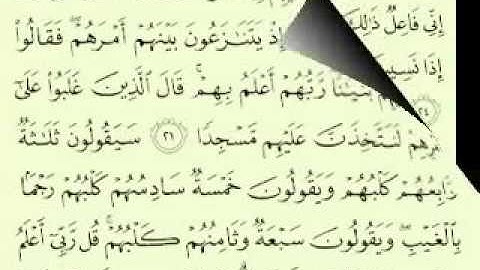 إِنِّي فَاعِلٌ ذَٰلِكَ
إِذْ يَتَنَازَعُونَ بَيْنَهُمْ أَمْرَهُمْ ۖ فَقَالُوا
إِذَا نَسِيتَ
رَّبُّهُمْ أَعْلَمُ بِهِمْ ۚ قَالَ الَّذِينَ غَلَبُوا عَلَىٰ
٢٤
لَنَتَّخِذَنَّ عَلَيْهِم مَّسْجِدًا ٢١ سَيَقُولُونَ ثَلَٰثَةٌ
رَّابِعُهُمْ كَلْبُهُمْ وَيَقُولُونَ خَمْسَةٌ سَادِسُهُمْ كَلْبُهُمْ رَجْمًا
بِالْغَيْبِ ۖ وَيَقُولُونَ سَبْعَةٌ وَثَامِنُهُمْ كَلْبُهُمْ ۚ قُل رَّبِّي أَعْلَمُ